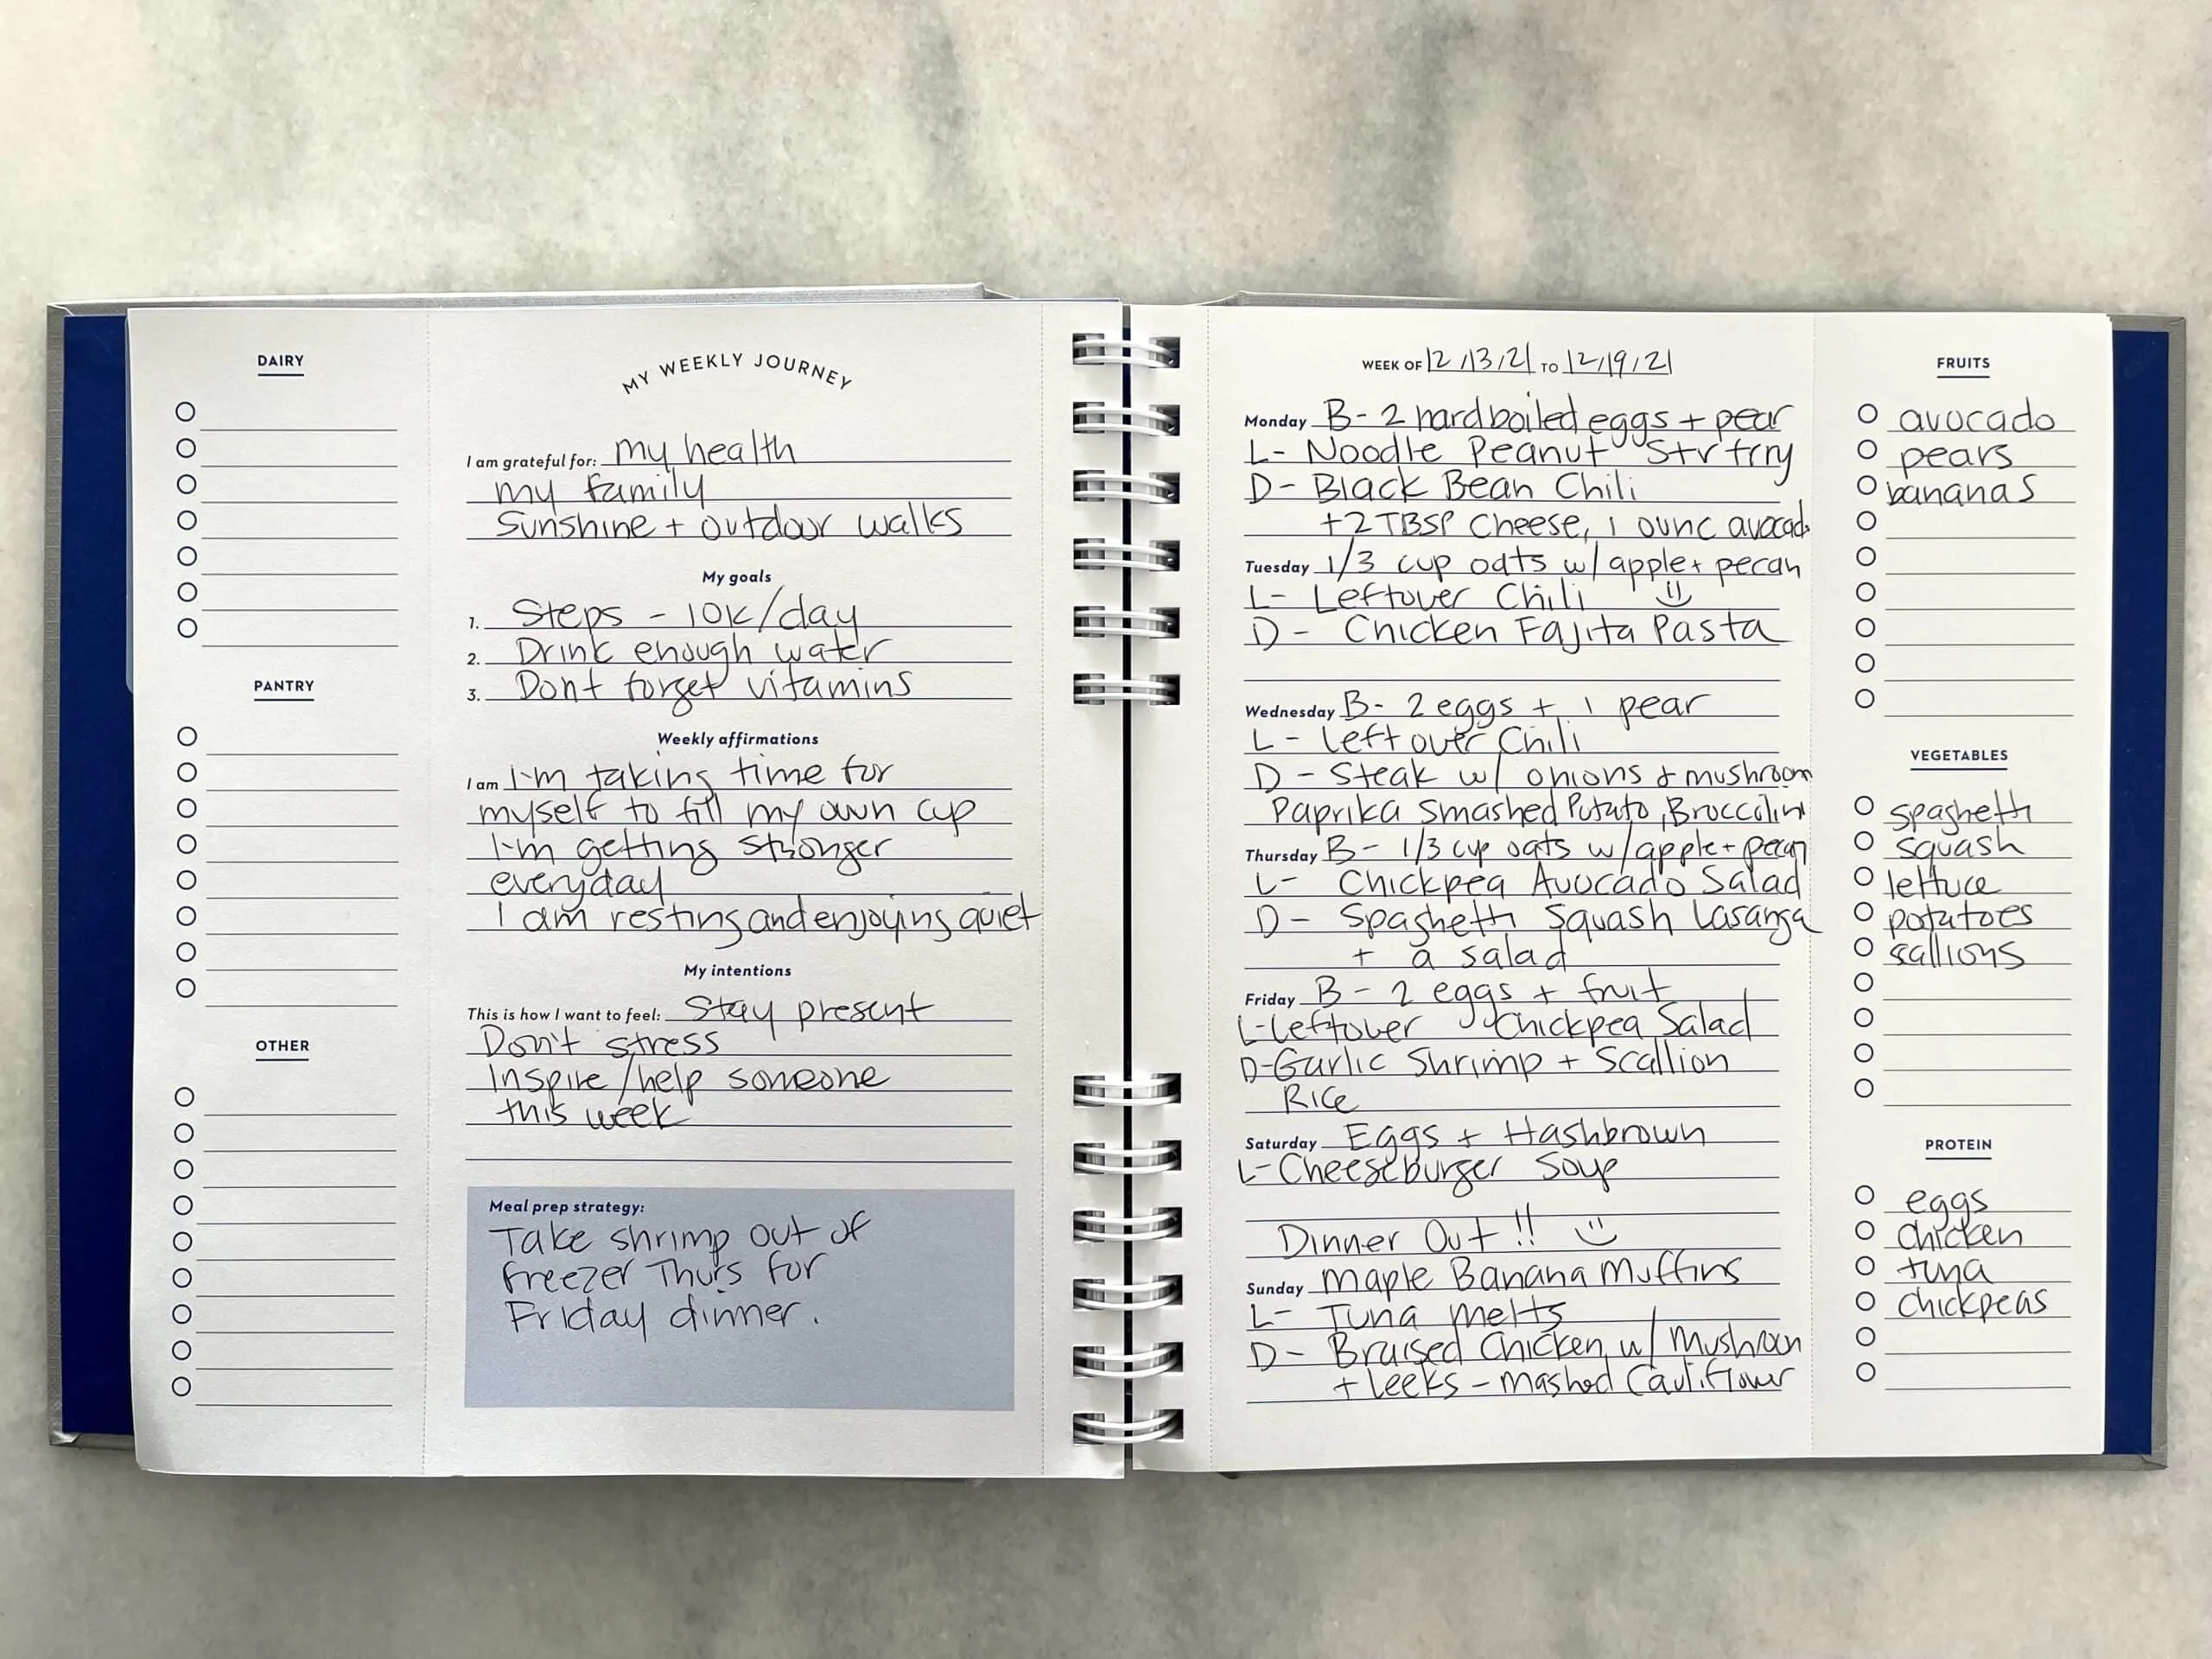 DAIRY
PANTRY
OTHER
MY WEEKLY JOURNEY
I am grateful for: my health
my family
Sunshine + outdoor walks
My goals
1. Steps - 10K/day
2. Drink enough water
3. Dont forget vitamins
Weekly affirmations
I am I'm taking time for
myself to fill my own cup
I'm getting stronger
everyday
I am resting and enjoying quiet
My intentions
This is how I want to feel: Stay present
Don't stress
Inspire/help someone
this week
Meal prep strategy:
Take shrimp out of
freezer Thurs for
Friday dinner.
WEEK OF 12/13/21 TO 12/19/21
Monday B- 2 hardboiled eggs + pear
L- Noodle Peanut Strfry
D- Black Bean Chili
+2 TBSP Cheese, 1 ounc avocado
Tuesday 1/3 cup oats w/apple+ pecan
L- Leftover Chili
D- Chicken Fajita Pasta
Wednesday B- 2 eggs + 1 pear
L- Leftover Chili
D- Steak w/ onions & mushroom
Paprika Smashed Potato, Broccolini
Thursday B- 1/3 cup oats w/apple+pecan
L- Chickpea Avocado Salad
D- Spaghetti Squash Lasanga
+ a salad
Friday B- 2 eggs + fruit
L-Leftover Chickpea Salad
D-Garlic Shrimp + Scallion
Rice
Saturday Eggs + Hashbrown
L-Cheeseburger Soup
Dinner Out!!
Sunday Maple Banana Muffins
L- Tuna Melts
D- Braised Chicken w/ Mushroom
+ Leeks - mashed Cauliflower
FRUITS
avocado
pears
bananas
VEGETABLES
spaghetti
squash
lettuce
potatoes
scallions
PROTEIN
eggs
chicken
tuna
chickpeas